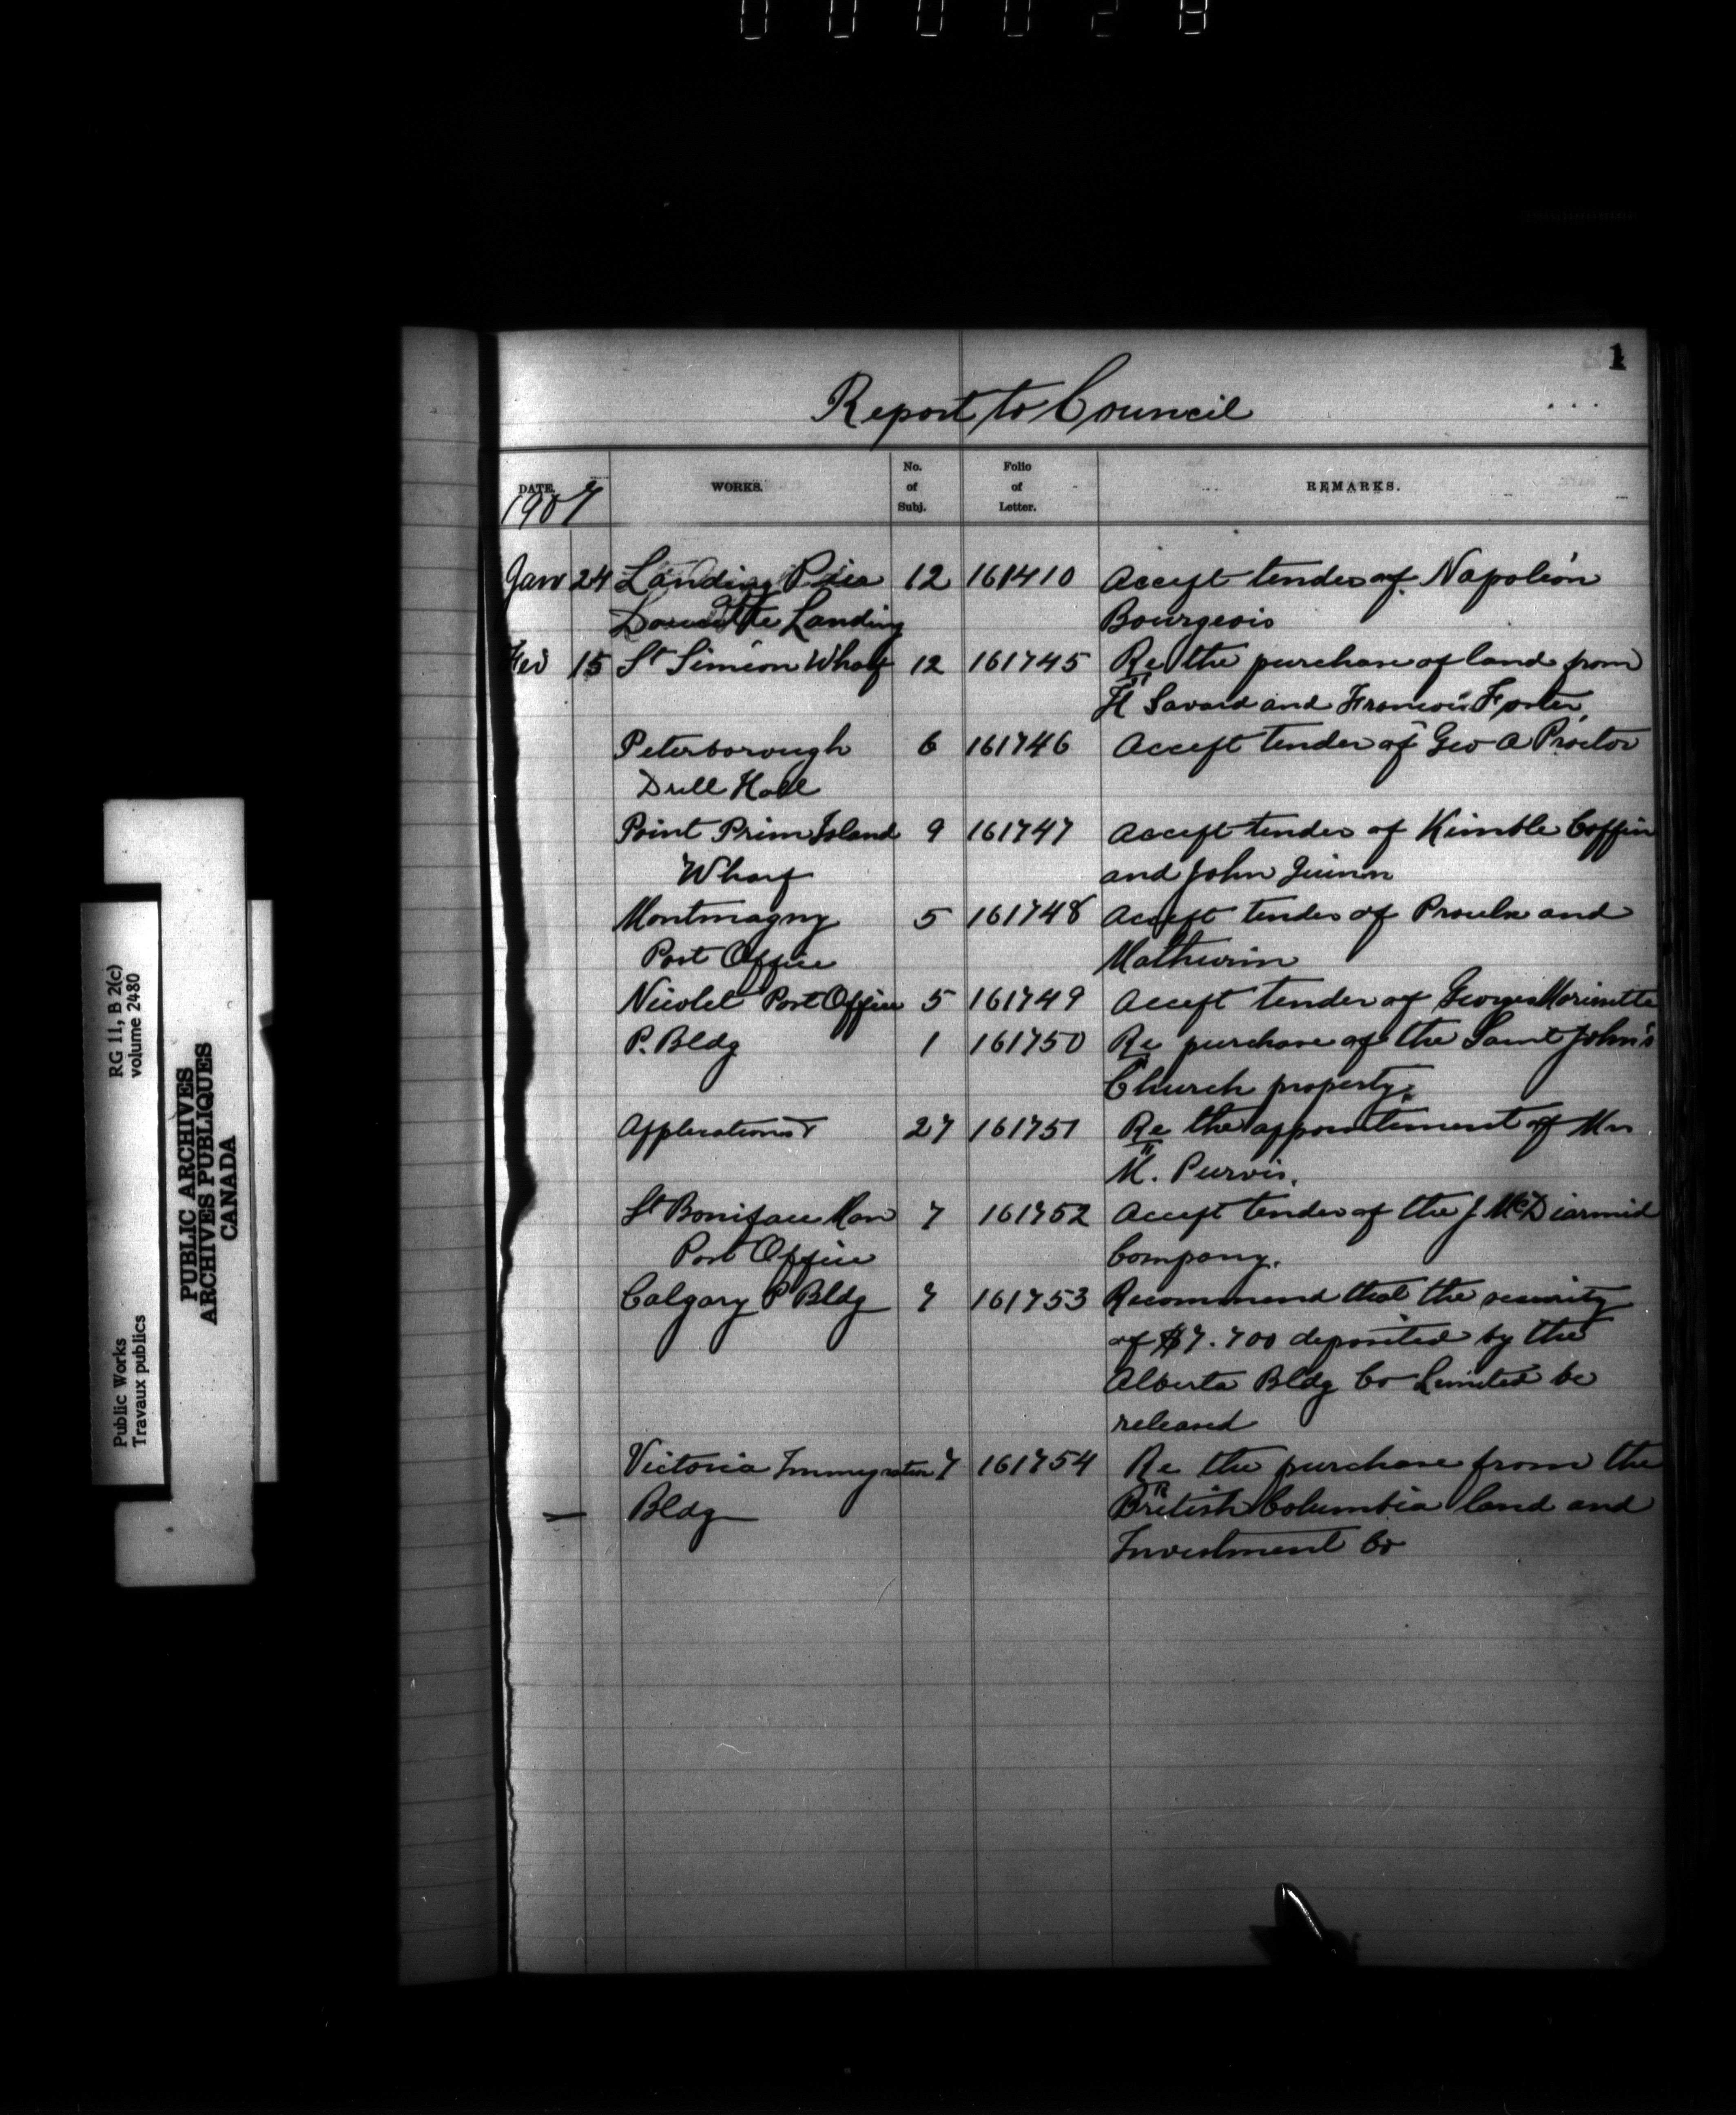 000028
1
Report to Council
DATE. WORKS. No. of Subj. Folio of Letter. REMARKS.
1907
Jan 24 Landing Pier 12 161410 Accept tender of Napoléon
Doucette Landing Bourgeois
Feb 15 St Siméon Wharf 12 161745 Re the purchase of land from
H Savard and Francois Foster
Peterborough 6 161746 Accept tender of Geo A Proctor
Drill Hall
Point Prim Island 9 161747 Accept tender of Kimble Coffin
Wharf and John Quinn
Montmagny 5 161748 Accept tender of Proulx and
Post Office Mathurin
Nicolet Post Office 5 161749 Accept tender of Georges Morissette
P. Bldg 1 161750 Re purchase of the Saint John's
Church property.
Applications 27 161751 Re the appointment of Mrs
M. Purvis.
St Boniface Man 7 161752 Accept tender of the J. McDiarmid
Post Office Company.
Calgary P Bldg 7 161753 Recommend that the security
of $7.700 deposited by the
Alberta Bldg Co Limited be
released
Victoria Immigration 7 161754 Re the purchase from the
Bldg British Columbia land and
Investment Co
RG 11, B 2(c)
volume 2480
PUBLIC ARCHIVES
ARCHIVES PUBLIQUES
CANADA
Public Works
Travaux publics